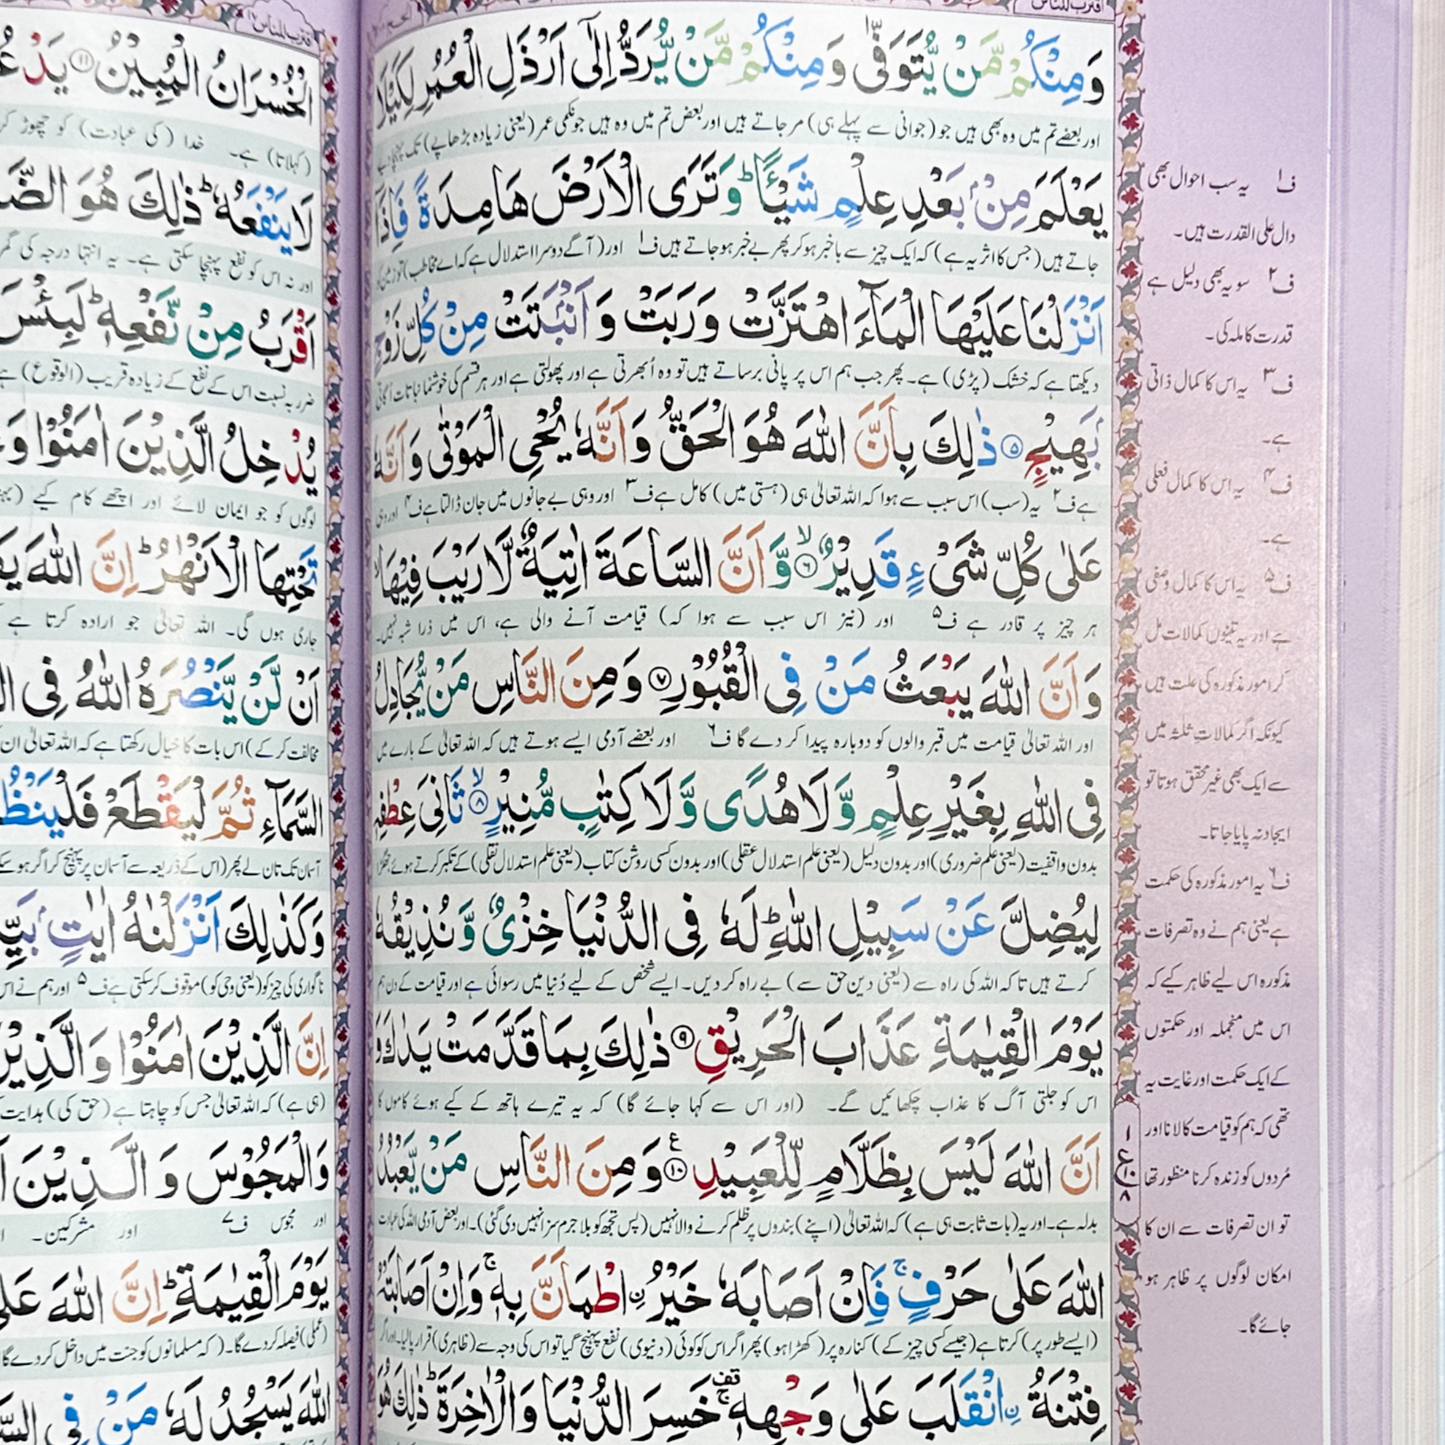 اقترب للناس
وَمِنْكُمْ مَّنْ يُّتَوَفّٰى وَمِنْكُمْ مَّنْ يُّرَدُّ اِلٰٓى اَرْذَلِ الْعُمُرِ لِكَيْلَا
اور بعضے تم میں وہ بھی ہیں جو (جوانی سے پہلے ہی) مرجاتے ہیں اور بعض تم میں وہ ہیں جو نکمی عمر (یعنی زیادہ بڑھاپے) تک پہنچا دیے
يَعْلَمَ مِنْۢ بَعْدِ عِلْمٍ شَيْـًٔا ؕ وَتَرَى الْاَرْضَ هَامِدَةً فَاِذَا
جاتے ہیں (جس کا اثر یہ ہے) کہ ایک چیز سے باخبر ہو کر پھر بے خبر ہوجاتے ہیں ف۱ اور (آگے دوسرا استدلال ہے کہ اے مخاطب) تو زمین کو
اَنْزَلْنَا عَلَيْهَا الْمَآءَ اهْتَزَّتْ وَرَبَتْ وَاَنْۢبَتَتْ مِنْ كُلِّ زَوْجٍۭ
دیکھتا ہے کہ خشک (پڑی) ہے۔ پھر جب ہم اس پر پانی برساتے ہیں تو وہ اُبھرتی ہے اور پھولتی ہے اور ہر قسم کی خوشنما نباتات اگاتی
بَهِيْجٍ ۵ ذٰلِكَ بِاَنَّ اللّٰهَ هُوَ الْحَقُّ وَاَنَّهٗ يُحْىِ الْمَوْتٰى وَاَنَّهٗ
ہے ف۲ یہ (سب) اس سبب سے ہوا کہ اللہ تعالیٰ ہی (ہستی میں) کامل ہے ف۳ اور وہی بے جانوں میں جان ڈالتا ہے ف۴ اور وہی
عَلٰى كُلِّ شَىْءٍ قَدِيْرٌ ۙ ۶ وَّاَنَّ السَّاعَةَ اٰتِيَةٌ لَّا رَيْبَ فِيْهَا ۙ
ہر چیز پر قادر ہے ف۵ اور (نیز اس سبب سے ہوا کہ) قیامت آنے والی ہے، اس میں ذرا شبہ نہیں۔
وَاَنَّ اللّٰهَ يَبْعَثُ مَنْ فِى الْقُبُوْرِ ۷ وَمِنَ النَّاسِ مَنْ يُّجَادِلُ
اور اللہ تعالیٰ قیامت میں قبر والوں کو دوبارہ پیدا کر دے گا ف۶ اور بعضے آدمی ایسے ہوتے ہیں کہ اللہ تعالیٰ کے بارے میں
فِى اللّٰهِ بِغَيْرِ عِلْمٍ وَّلَا هُدًى وَّلَا كِتٰبٍ مُّنِيْرٍ ۙ ۸ ثَانِىَ عِطْفِهٖ
بدون واقفیت (یعنی علم ضروری) اور بدون دلیل (یعنی علم استدلال عقلی) اور بدون کسی روشن کتاب (یعنی علم استدلال نقلی) کے تکبر کرتے ہوئے جھگڑا
لِيُضِلَّ عَنْ سَبِيْلِ اللّٰهِ ؕ لَهٗ فِى الدُّنْيَا خِزْىٌ وَّنُذِيْقُهٗ
کرتے ہیں تاکہ اللہ کی راہ سے (یعنی دین حق سے) بے راہ کر دیں۔ ایسے شخص کے لیے دُنیا میں رسوائی ہے اور قیامت کے دن ہم
يَوْمَ الْقِيٰمَةِ عَذَابَ الْحَرِيْقِ ۹ ذٰلِكَ بِمَا قَدَّمَتْ يَدٰكَ وَ
اس کو جلتی آگ کا عذاب چکھائیں گے۔ (اور اس سے کہا جائے گا) کہ یہ تیرے ہاتھ کے کیے ہوئے کاموں کا
اَنَّ اللّٰهَ لَيْسَ بِظَلَّامٍ لِّلْعَبِيْدِ ۱۰ ع وَمِنَ النَّاسِ مَنْ يَّعْبُدُ
بدلہ ہے۔ اور یہ (بات ثابت ہی ہے) کہ اللہ تعالیٰ (اپنے) بندوں پر ظلم کرنے والا نہیں (پس تجھ کو بلا جرم سزا نہیں دی گئی)۔ اور بعض آدمی اللہ کی عبادت
اللّٰهَ عَلٰى حَرْفٍ ۚ فَاِنْ اَصَابَهٗ خَيْرُ ِۨاطْمَاَنَّ بِهٖ ۚ وَاِنْ اَصَابَتْهُ
(ایسے طور پر) کرتا ہے (جیسے کسی چیز کے) کنارہ پر (کھڑا ہو) پھر اگر اس کو کوئی (دنیوی) نفع پہنچ گیا تو اس کی وجہ سے (ظاہری) قرار پالیا۔ اور اگر
فِتْنَةُ ِۨانْقَلَبَ عَلٰى وَجْهِهٖ ۚ قف خَسِرَ الدُّنْيَا وَالْاٰخِرَةَ ؕ ذٰلِكَ هُوَ
ف۱ یہ سب احوال بھی
دال علی القدرت ہیں۔
ف۲ سو یہ بھی دلیل ہے
قدرت کاملہ کی۔
ف۳ یہ اس کا کمال ذاتی
ہے۔
ف۴ یہ اس کا کمال فعلی
ہے۔
ف۵ یہ اس کا کمال وصفی
ہے اور یہ تینوں کمالات مل
کر امور مذکورہ کی علت ہیں
کیونکہ اگر کمالات ثلثہ میں
سے ایک بھی غیر متحقق ہوتا تو
ایجاد نہ پایا جاتا۔
ف۶ یہ امور مذکورہ کی حکمت
ہے یعنی ہم نے وہ تصرفات
مذکورہ اس لیے ظاہر کیے کہ
اس میں منجملہ اور حکمتوں
کے ایک حکمت اور غایت یہ
تھی کہ ہم کو قیامت کا لانا اور
مُردوں کو زندہ کرنا منظور تھا
تو ان تصرفات سے ان کا
امکان لوگوں پر ظاہر ہو
جائے گا۔
۱
ع
۸
اقترب للناس
الْخُسْرَانُ الْمُبِيْنُ ۱۱ يَدْعُ
(کہلاتا) ہے۔ خدا (کی عبادت) کو چھوڑ کر
لَا يَنْفَعُهٗ ؕ ذٰلِكَ هُوَ الضَّ
اور نہ اس کو نفع پہنچا سکتی ہے۔ یہ انتہا درجہ کی گمر
اَقْرَبُ مِنْ نَّفْعِهٖ ؕ لَبِئْسَ
ضرر بہ نسبت اس کے نفع کے زیادہ قریب (الوقوع) ہے
يُدْخِلُ الَّذِيْنَ اٰمَنُوْا وَعَ
لوگوں کو جو ایمان لائے اور اچھے کام کیے
تَحْتِهَا الْاَنْهٰرُ ؕ اِنَّ اللّٰهَ يَفْ
جاری ہوں گی۔ اللہ تعالیٰ جو ارادہ کرتا ہے
اَنْ لَّنْ يَّنْصُرَهُ اللّٰهُ فِى ال
مخالفت کرکے) اس بات کا خیال رکھتا ہے کہ اللہ تعالیٰ ان
السَّمَآءِ ثُمَّ لْيَقْطَعْ فَلْيَنْظُ
آسمان تک تان لے پھر (اس کے ذریعہ سے آسمان پر پہنچ کر اگر ہو سکے
وَكَذٰلِكَ اَنْزَلْنٰهُ اٰيٰتٍۢ بَيِّ
ناگواری کی چیز کو (یعنی وحی کو) موقوف کرسکتی ہے ف۵ اور ہم نے اس
اِنَّ الَّذِيْنَ اٰمَنُوْا وَالَّذِيْنَ
(ہی ہے) کہ اللہ تعالیٰ جس کو چاہتا ہے (حق کی) ہدایت کر
وَالْمَجُوْسَ وَالَّذِيْنَ اَ
اور مجوس ف۷ اور مشرکین۔
يَوْمَ الْقِيٰمَةِ ؕ اِنَّ اللّٰهَ عَلٰ
(عملی) فیصلہ کردے گا۔ (کہ مسلمانوں کو جنت میں داخل کردے گا
اللّٰهَ يَسْجُدُ لَهٗ مَنْ فِى السَّ